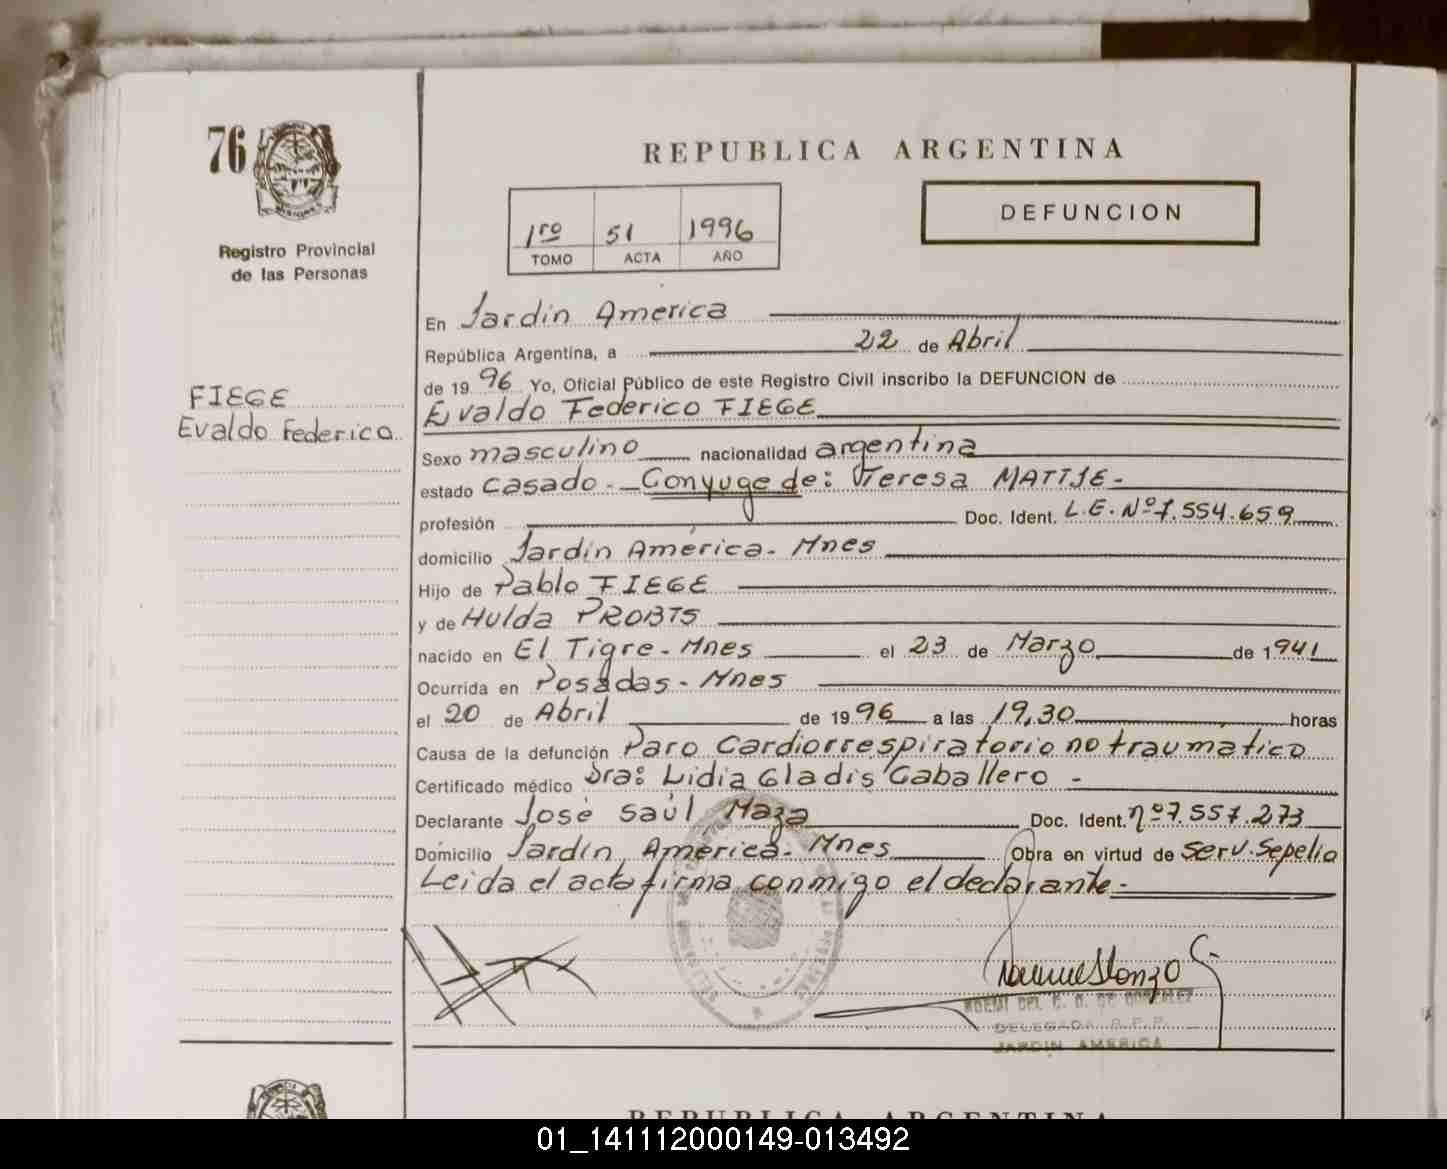 76
REPUBLICA ARGENTINA
1ro 51 1996
TOMO ACTA AÑO
DEFUNCION
Registro Provincial
de las Personas
FIEGE
Evaldo Federico
En Jardin America
República Argentina, a 22 de Abril
de 1996 Yo, Oficial Público de este Registro Civil inscribo la DEFUNCION de
Evaldo Federico FIEGE
Sexo masculino nacionalidad argentina
estado casado.- Conyuge de: Teresa MATTJE-
profesión Doc. Ident. L.E. Nº 7.554.659
domicilio Jardin América- Mnes
Hijo de Pablo FIEGE
y de Hulda PROBTS
nacido en El Tigre- Mnes el 23 de Marzo de 1941
Ocurrida en Posadas- Mnes
el 20 de Abril de 1996 a las 19,30 horas
Causa de la defunción Paro Cardiorrespiratorio no traumatico
Certificado médico Dra: Lidia Gladis Caballero -
Declarante José Saúl Maza Doc. Ident. nº 7.557.273
Domicilio Jardín América- Mnes Obra en virtud de Serv. Sepelio
Leida el acta firma conmigo el declarante-
NOEMI DEL C. A. DE GONZALEZ
DELEGADA R.P.P.
JARDIN AMERICA
REPUBLICA ARGENTINA
01_141112000149-013492